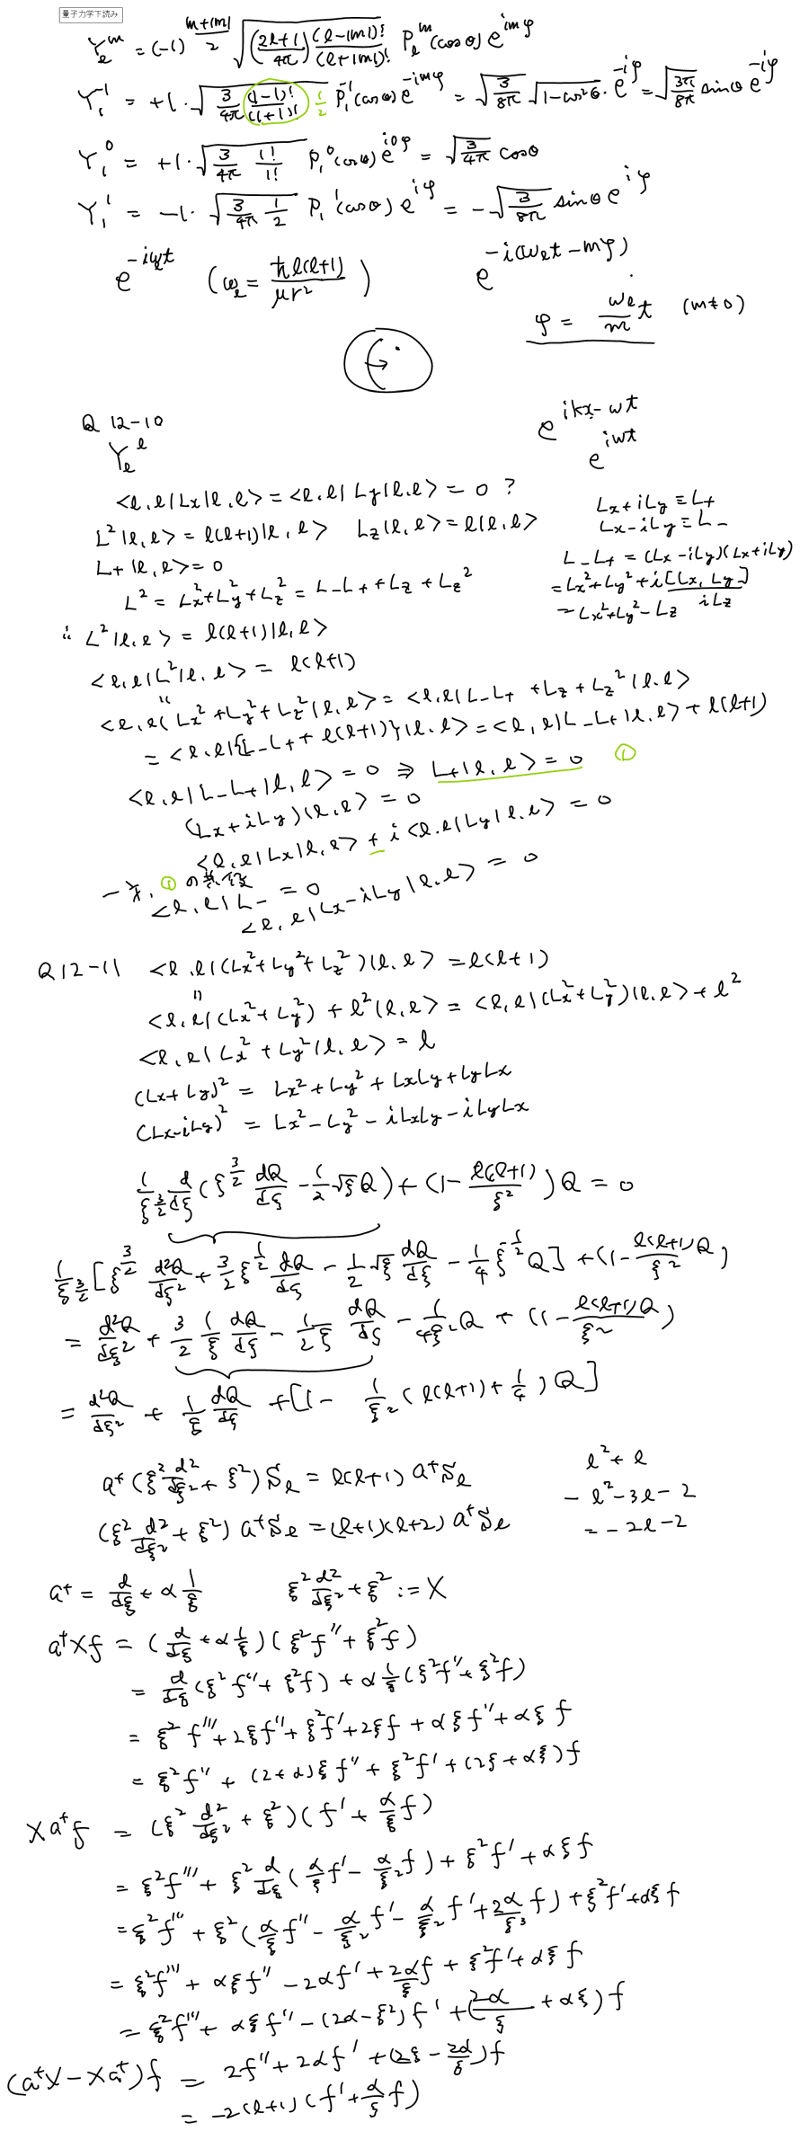 量子力学下読み
Y_l^m = (-1)^{\frac{m+|m|}{2}} \sqrt{(\frac{2l+1}{4π})\frac{(l-|m|)!}{(l+|m|)!}} P_l^m(cosθ) e^{imφ}
Y_1^{-1} = +1・\sqrt{\frac{3}{4π}\frac{(1-1)!}{(1+1)!}} \frac{1}{2} P_1^{-1}(cosθ) e^{-imφ} = \sqrt{\frac{3}{8π}} \sqrt{1-cos^2θ}・e^{-iφ} = \sqrt{\frac{3π}{8π}} sinθ e^{-iφ}
Y_1^0 = +1・\sqrt{\frac{3}{4π}\frac{1!}{1!}} P_1^0(cosθ) e^{i0φ} = \sqrt{\frac{3}{4π}} cosθ
Y_1^1 = -1・\sqrt{\frac{3}{4π}\frac{1}{2}} P_1^1(cosθ) e^{iφ} = -\sqrt{\frac{3}{8π}} sinθ e^{iφ}
e^{-iω_l t} (ω_l = \frac{ħl(l+1)}{μr^2}) e^{-i(ω_l t-mφ)}
φ = \frac{ω_l}{m}t (m≠0)
Q 12-10 e^{ikx-ωt}
Y_l^l e^{iωt}
<l,l|Lx|l,l> = <l,l|Ly|l,l> = 0 ?
Lx+iLy = L+
L^2|l,l> = l(l+1)|l,l> Lz|l,l> = l|l,l> Lx-iLy = L-
L+|l,l> = 0 L-L+ = (Lx-iLy)(Lx+iLy)
L^2 = Lx^2+Ly^2+Lz^2 = L-L+ + Lz + Lz^2 = Lx^2+Ly^2+i[Lx,Ly] iLz
= Lx^2+Ly^2-Lz
∵ L^2|l,l> = l(l+1)|l,l>
<l,l|L^2|l,l> = l(l+1)
<l,l|Lx^2+Ly^2+Lz^2|l,l> = <l,l|L-L+ + Lz + Lz^2|l,l>
= <l,l|{L-L+ + l(l+1)}|l,l> = <l,l|L-L+|l,l> + l(l+1)
<l,l|L-L+|l,l> = 0 ⇒ L+|l,l> = 0 ①
(Lx+iLy)|l,l> = 0
<l,l|Lx|l,l> + i<l,l|Ly|l,l> = 0
一方、①の共役
<l,l|L- = 0
<l,l|Lx-iLy|l,l> = 0
Q12-11 <l,l|(Lx^2+Ly^2+Lz^2)|l,l> = l(l+1)
<l,l|(Lx^2+Ly^2)+l^2|l,l> = <l,l|(Lx^2+Ly^2)|l,l>+l^2
<l,l|Lx^2+Ly^2|l,l> = l
(Lx+Ly)^2 = Lx^2+Ly^2+LxLy+LyLx
(Lx-iLy)^2 = Lx^2-Ly^2-iLxLy-iLyLx
\frac{1}{ξ^{3/2}}\frac{d}{dξ}(ξ^{3/2}\frac{dQ}{dξ} - \frac{1}{2}\sqrt{ξ}Q) + (1-\frac{l(l+1)}{ξ^2})Q = 0
\frac{1}{ξ^{3/2}}[ξ^{3/2}\frac{d^2Q}{dξ^2} + \frac{3}{2}ξ^{1/2}\frac{dQ}{dξ} - \frac{1}{2}\sqrt{ξ}\frac{dQ}{dξ} - \frac{1}{4}ξ^{-1/2}Q] + (1-\frac{l(l+1)}{ξ^2}Q)
= \frac{d^2Q}{dξ^2} + \frac{3}{2}\frac{1}{ξ}\frac{dQ}{dξ} - \frac{1}{2ξ}\frac{dQ}{dξ} - \frac{1}{4ξ^2}Q + (1-\frac{l(l+1)Q}{ξ^2})
= \frac{d^2Q}{dξ^2} + \frac{1}{ξ}\frac{dQ}{dξ} + [1-\frac{1}{ξ^2}(l(l+1)+\frac{1}{4})Q]
a^+(ξ^2\frac{d^2}{dξ^2}+ξ^2)S_l = l(l+1)a^+S_l l^2+l
(ξ^2\frac{d^2}{dξ^2}+ξ^2)a^+S_l = (l+1)(l+2)a^+S_l -l^2-3l-2
= -2l-2
a^+ = \frac{d}{dξ}+α\frac{1}{ξ} ξ^2\frac{d^2}{dξ^2}+ξ^2 := X
a^+Xf = (\frac{d}{dξ}+α\frac{1}{ξ})(ξ^2f''+ξ^2f)
= \frac{d}{dξ}(ξ^2f''+ξ^2f)+α\frac{1}{ξ}(ξ^2f''+ξ^2f)
= ξ^2f'''+2ξf''+ξ^2f'+2ξf+αξf''+αξf
= ξ^2f''+(2+α)ξf''+ξ^2f'+(2ξ+αξ)f
Xa^+f = (ξ^2\frac{d^2}{dξ^2}+ξ^2)(f'+\frac{α}{ξ}f)
= ξ^2f'''+ξ^2\frac{d}{dξ}(\frac{α}{ξ}f'-\frac{α}{ξ^2}f)+ξ^2f'+αξf
= ξ^2f'''+ξ^2(\frac{α}{ξ}f''-\frac{α}{ξ^2}f'-\frac{α}{ξ^2}f'+\frac{2α}{ξ^3}f)+ξ^2f'+αξf
= ξ^2f'''+αξf''-2αf'+\frac{2α}{ξ}f+ξ^2f'+αξf
= ξ^2f'''+αξf''-(2α-ξ^2)f'+(\frac{2α}{ξ}+αξ)f
(a^+X-Xa^+)f = 2f''+2αf'+(2ξ-\frac{2α}{ξ})f
= -2(l+1)(f'+\frac{α}{ξ}f)